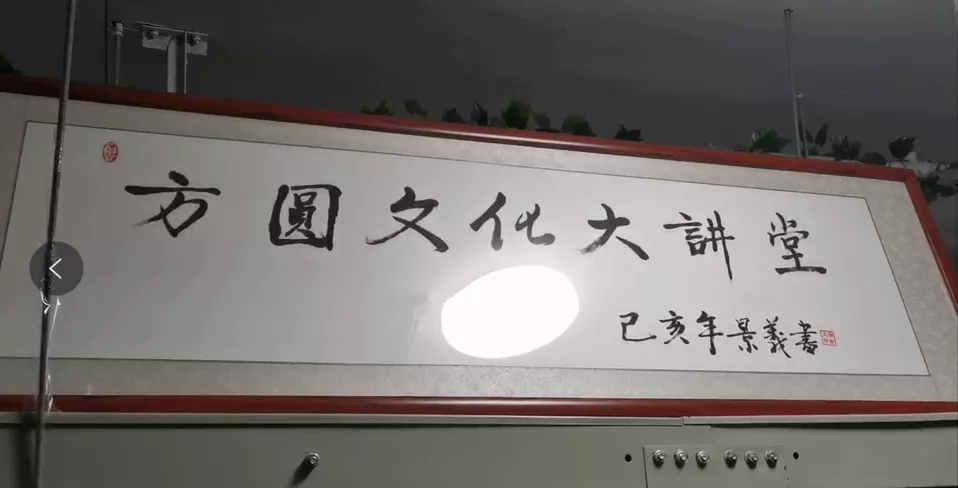 方圓文化大講堂
己亥年景義書